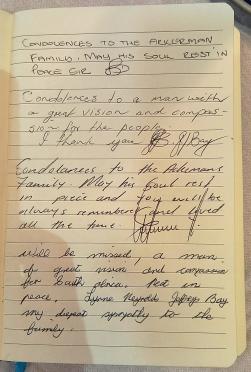 CONDOLENCES TO THE AKKERMAN
FAMILY. MAY HIS SOUL REST IN
PEACE SIR
Condolences to a man with
a great vision and compas-
sion for the people.
I thank you J/Bay
Condolances to the Akkermans
Family. May his Soul rest
in piece and you will be
always remembered and loved
all the time.
will be missed, a man
of great vision and compassion
for
peace. Lynne Reynolds Jeffreys Bay
my deepest sympathy to the
family.